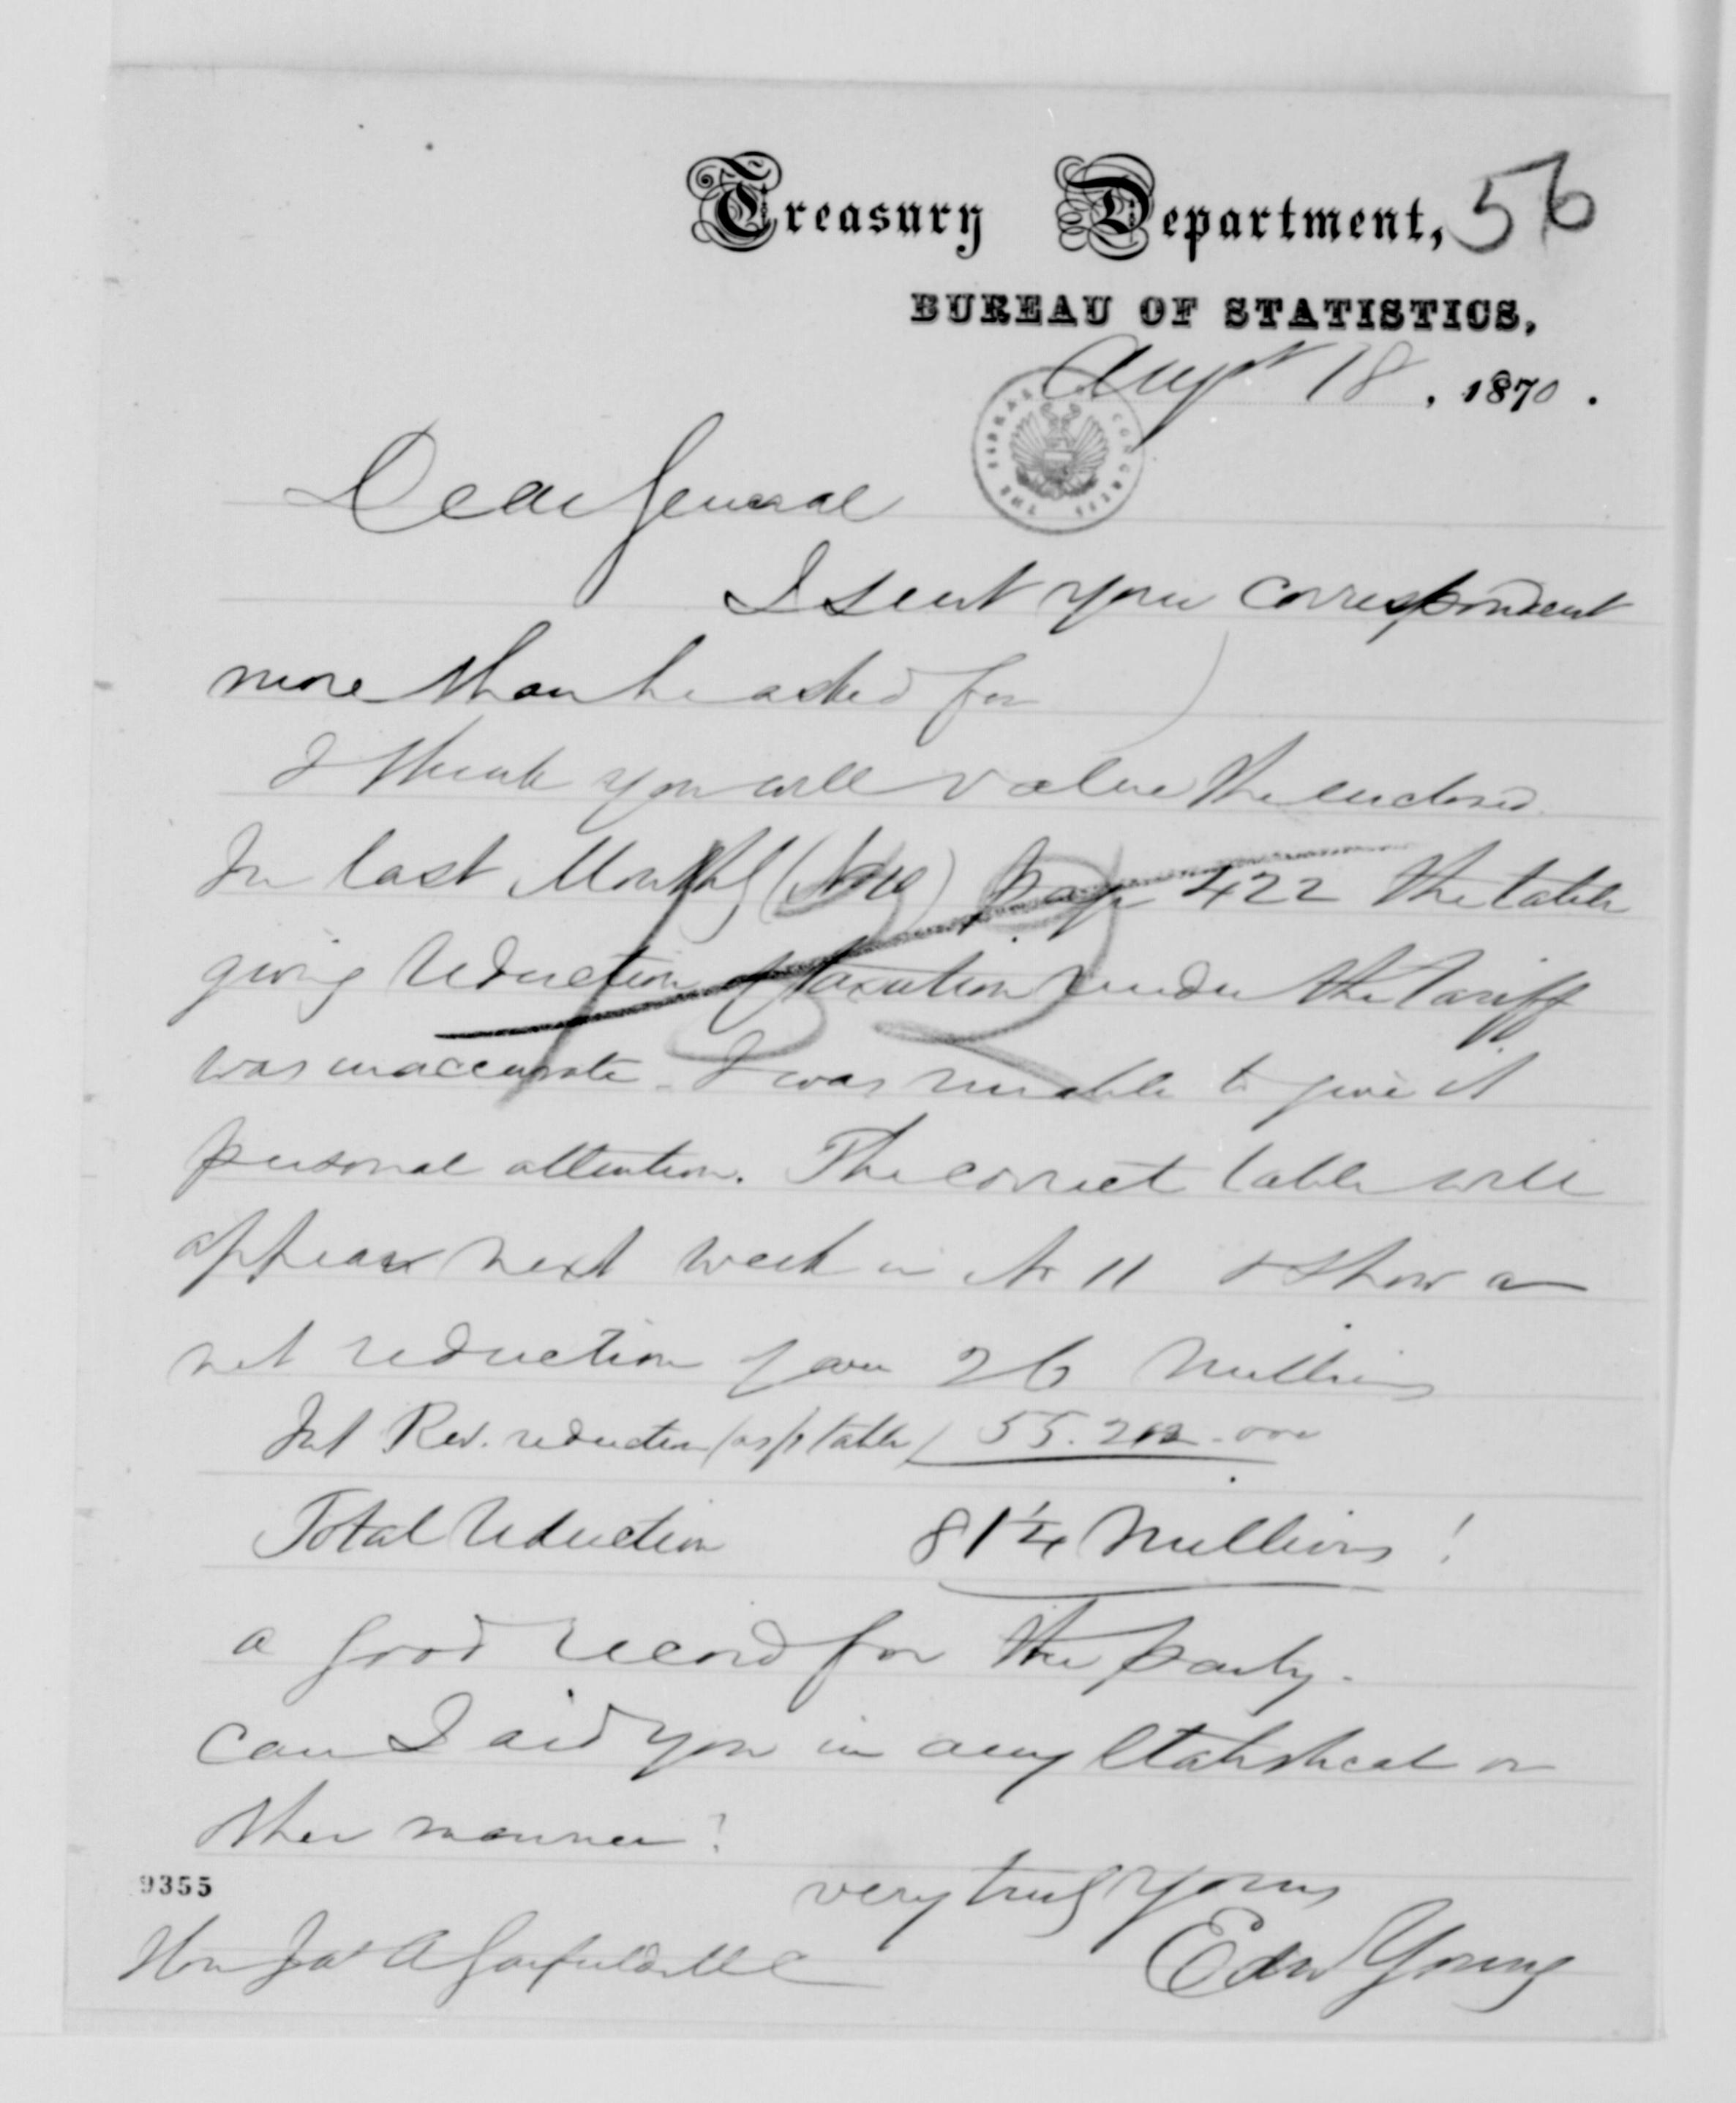 Treasury Department, 56
BUREAU OF STATISTICS,
Augt 18, 1870.
THE LIBRARY OF CONGRESS
Dear General
I sent your correspondent
more than he asked for
I think you will value the enclosed.
In last Monthly (No 10) page 422 the table
giving reduction of taxation under the tariff
was inaccurate. I was unable to give it
personal attention. The correct table will
appear next week in No 11 & show a
net reduction of over 26 millions
Int Rev. reduction (as pr table) 55.212.000
Total reduction 81 1/4 millions!
a good record for the party.
Can I aid you in any Statistical or
other manner?
very truly yours
9355
Edw Young
Hon Jas A Garfield M C